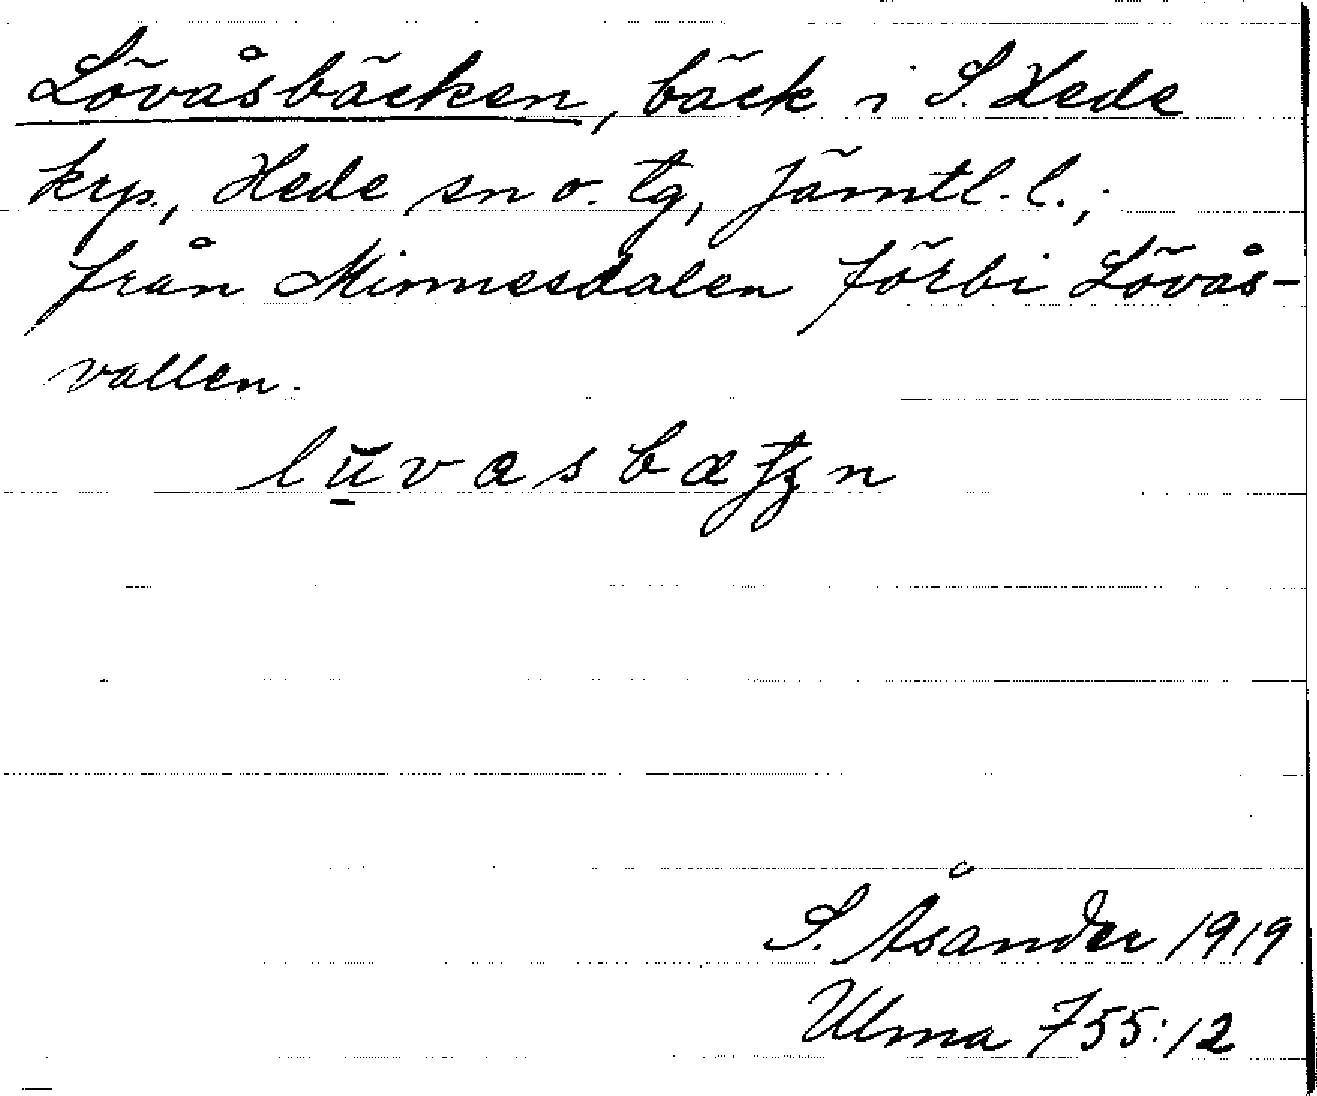 Lövåsbäcken, bäck i S. Hede
krp., Hede sn o. tg, Jämtl. l.,
från Minnesdalen förbi Lövås-
vallen.
S. Åsander 1919
Ulma 755:12